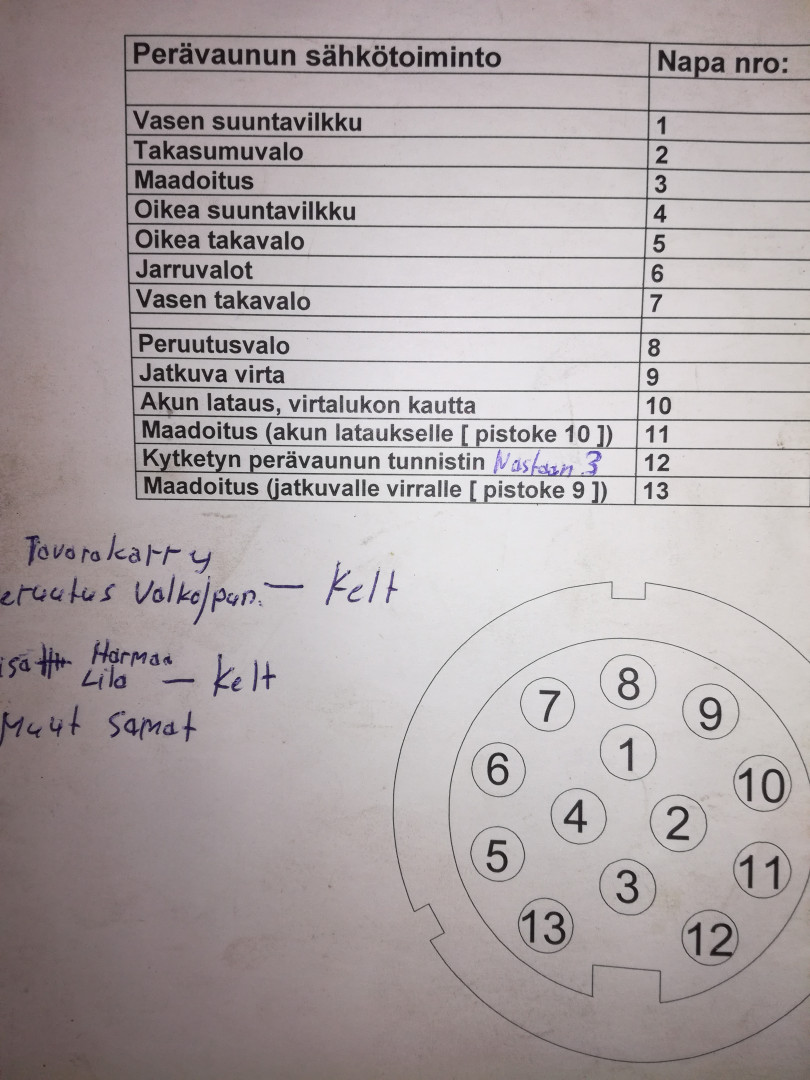 Perävaunun sähkötoiminto Napa nro:
Vasen suuntavilkku 1
Takasumuvalo 2
Maadoitus 3
Oikea suuntavilkku 4
Oikea takavalo 5
Jarruvalot 6
Vasen takavalo 7
Peruutusvalo 8
Jatkuva virta 9
Akun lataus, virtalukon kautta 10
Maadoitus (akun lataukselle [ pistoke 10 ]) 11
Kytketyn perävaunun tunnistin Nastaan 3 12
Maadoitus (jatkuvalle virralle [ pistoke 9 ]) 13
Tavarakarry
eruutus Valko/pun. — Kelt
Harmaa
Lila — Kelt
Muut samat
8
7 9
1
6 10
4 2
5 11
3
13 12